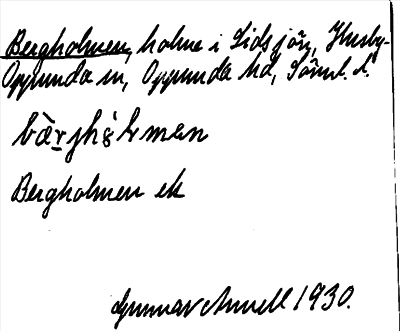 Bergholmen, holme i Lidsjön, Husby-
Oppunda sn, Oppunda hd, Sörml. l.
Bergholmen ek
Gunnar Annell 1930.